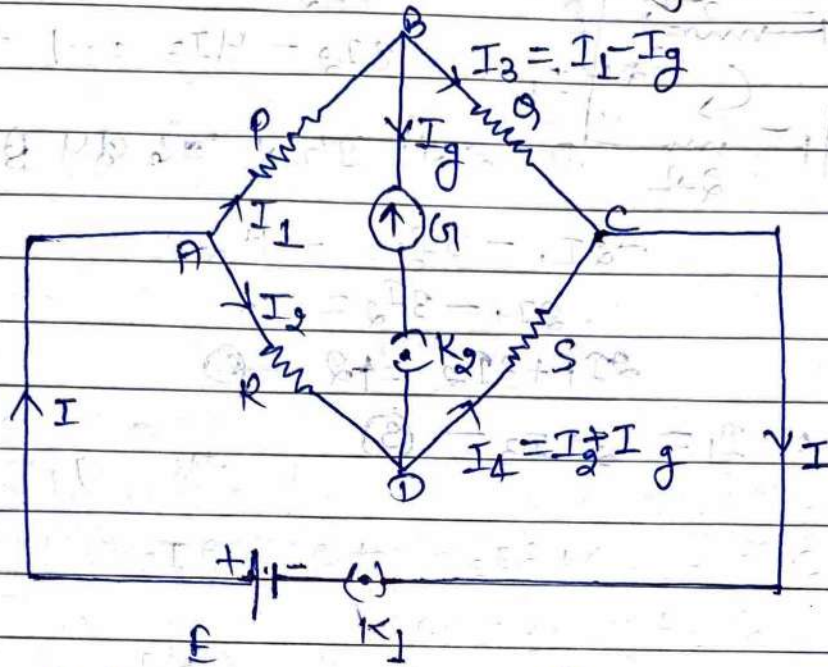 B
I3 = I1 - Ig
P
Q
Ig
I1
G
A
C
I2
K2
S
R
I
I4 = I2 + Ig
I
D
+ -
E
K1